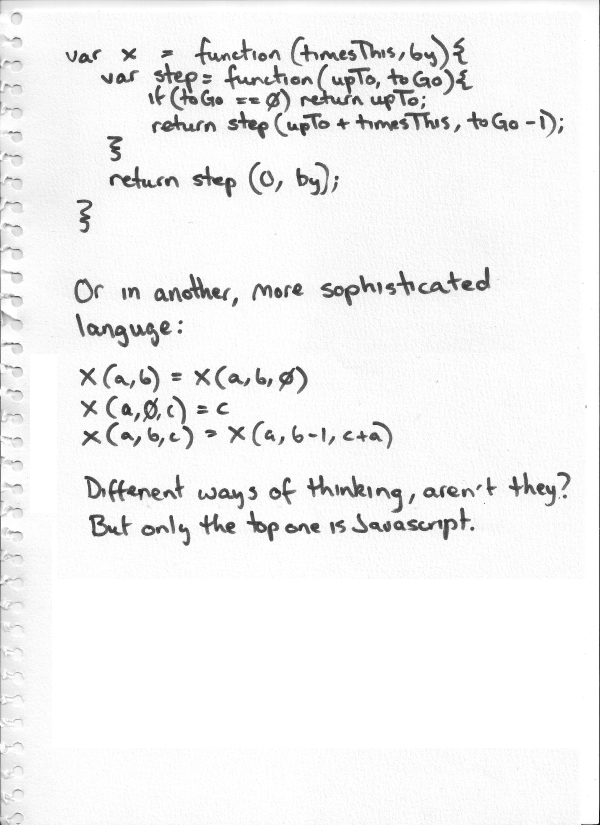 var x = function (timesThis, by) {
var step = function (upTo, toGo) {
if (toGo == Ø) return upTo;
return step (upTo + timesThis, toGo - 1);
}
return step (0, by);
}
Or in another, more sophisticated
languge:
X (a, b) = X (a, b, Ø)
X (a, Ø, c) = c
X (a, b, c) = X (a, b-1, c+a)
Different ways of thinking, aren't they?
But only the top one is Javascript.